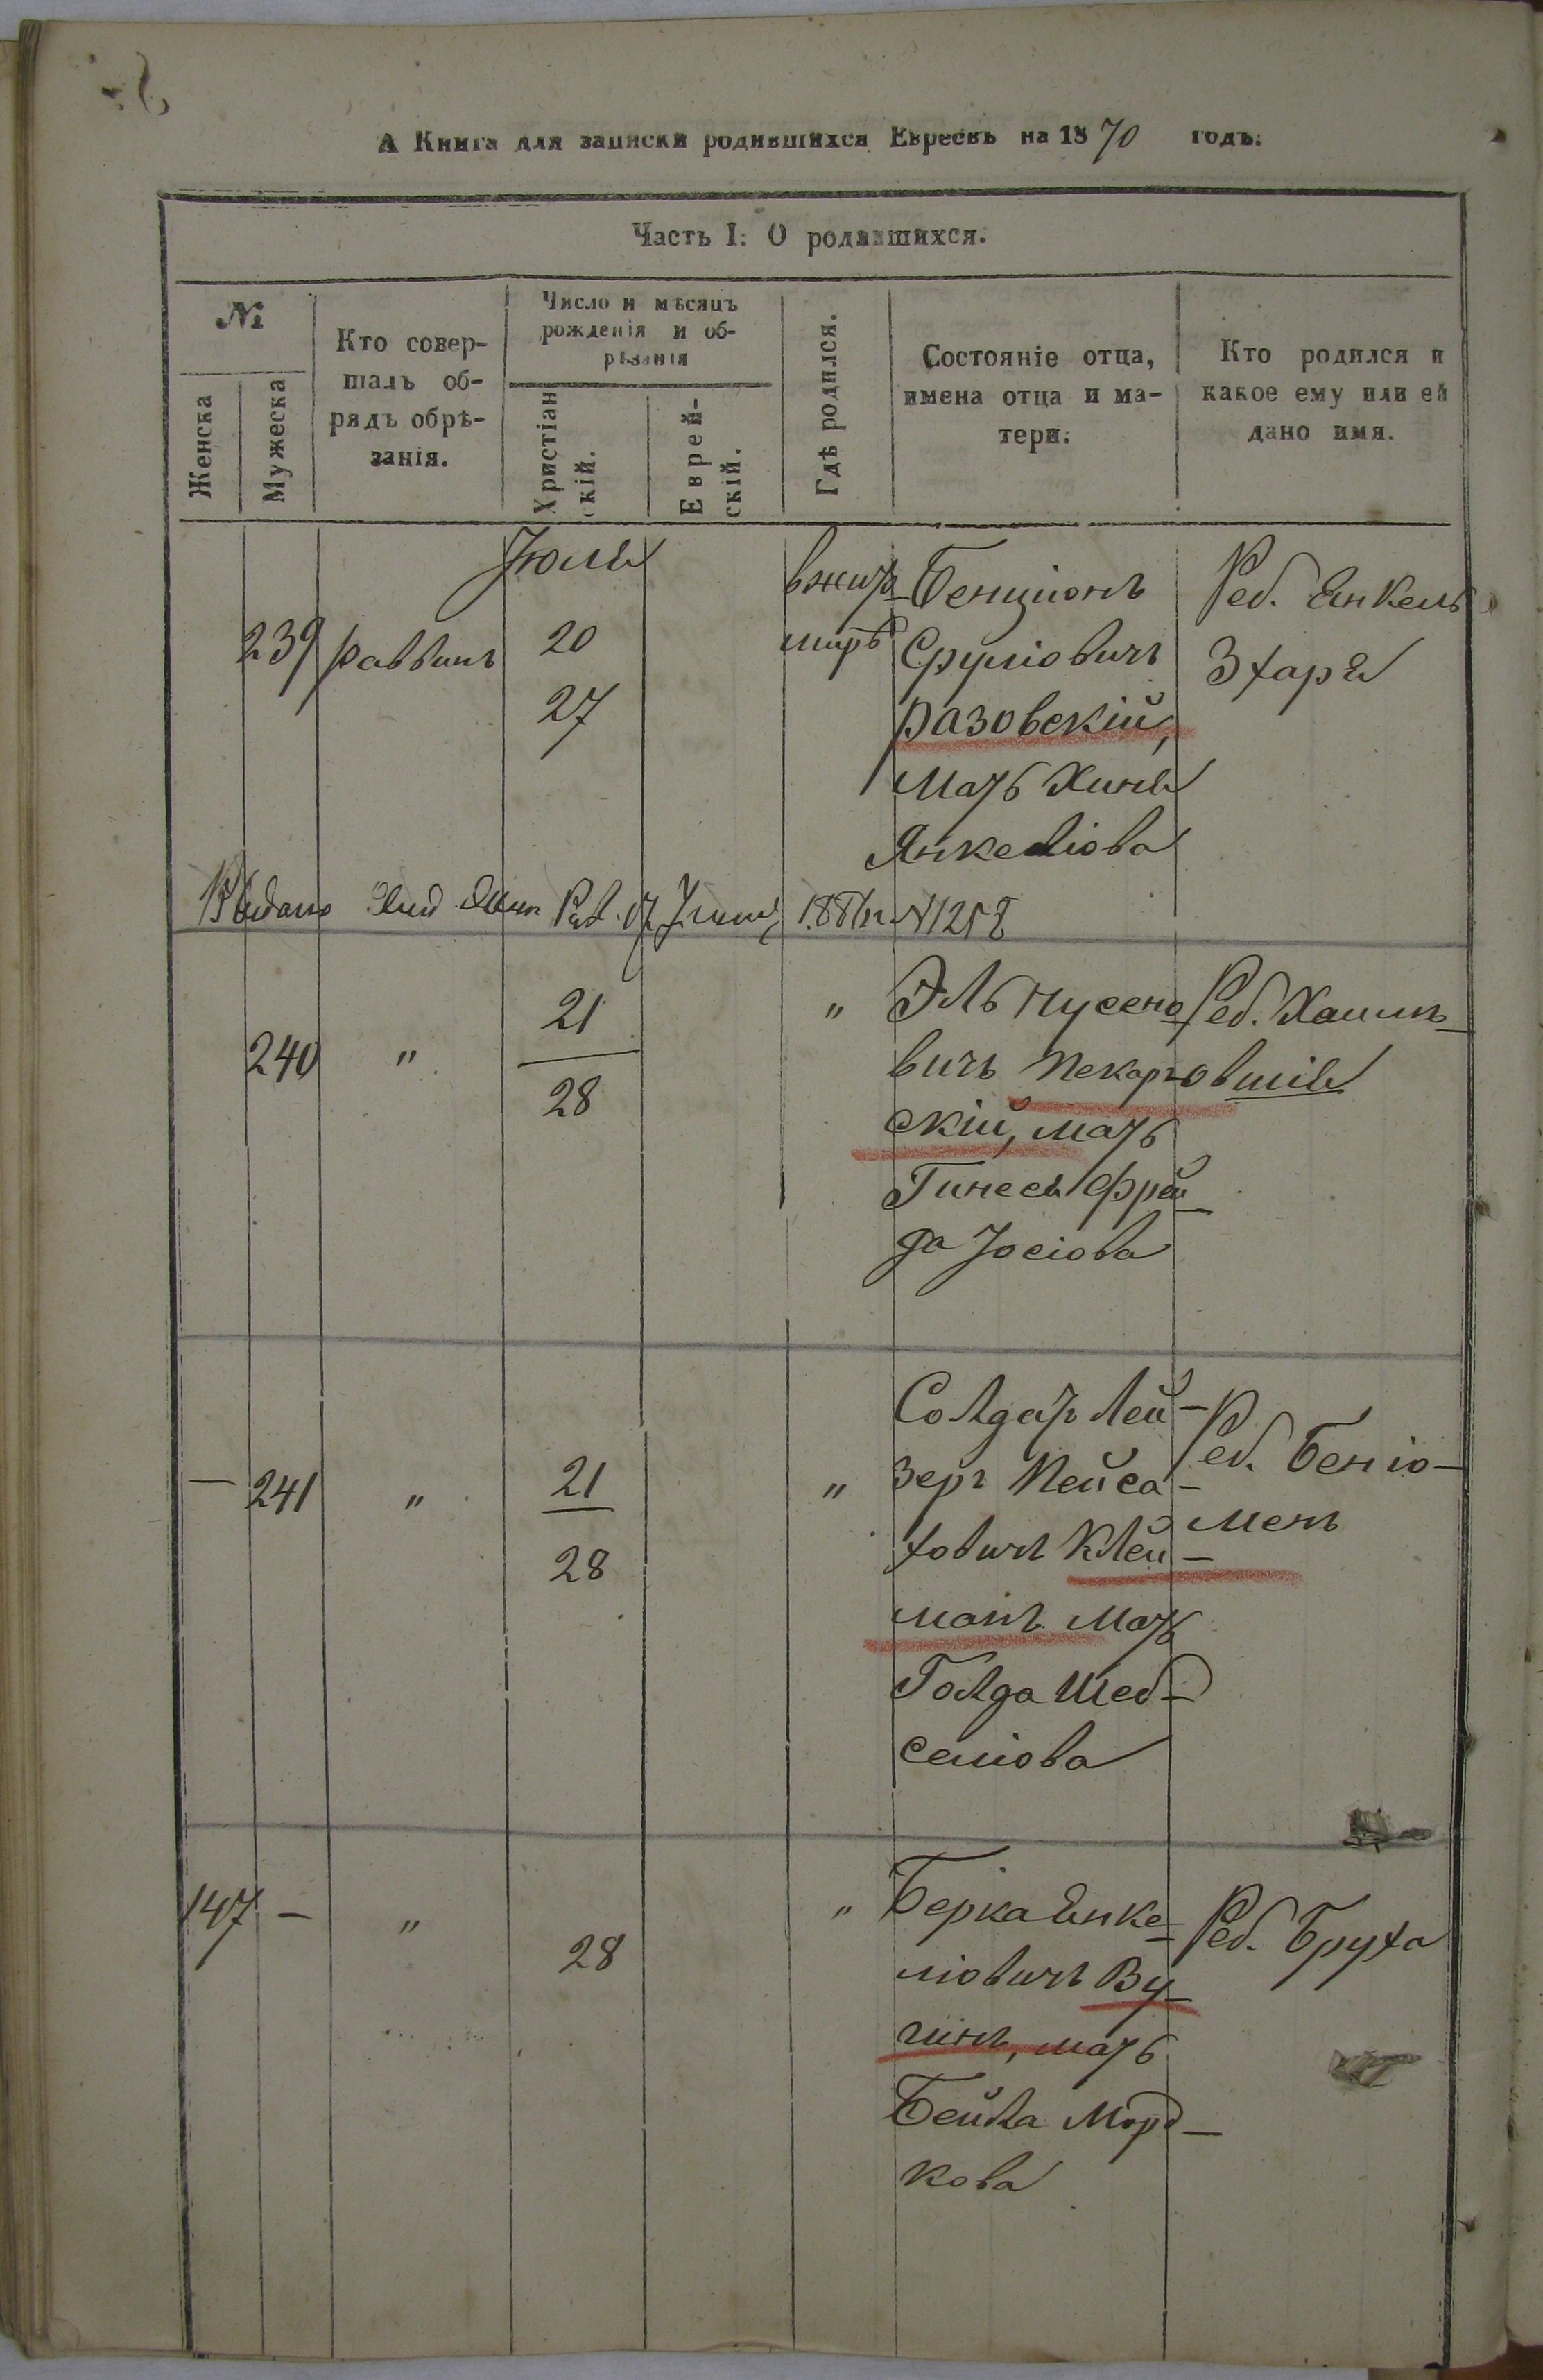 А Книга для записки родившихся Евреевъ на 1870 годъ.
Часть I: О родившихся.
№
Женска
Мужеска
Кто совер-
шалъ об-
рядъ обрѣ-
занія.
Число и мѣсяцъ
рожденія и об-
рѣзанія
Христіан
скій.
Еврей-
скій.
Гдѣ родился.
Состояніе отца,
имена отца и ма-
тери.
Кто родился и
какое ему или ей
дано имя.
Июля
239 раввинъ
20
27
вжит
мирѣ
Бенціонъ
Сруліовичъ
Разовскій,
мать Хиня
Янкеліова
Реб. Янкель
Зхаря
Выдано 188 г. №
240 "
21
28
"
Эль Нусено
вичъ Пекаров
скій, мать
Гинеся Фрей
да Іосіова
Реб. Хаимъ
241 "
21
28
"
Солдатъ Лей-
зеръ Пейса-
ховичъ Клей-
манъ мать
Голда Шеб-
селіова
Реб. Беніо-
менъ
147 - "
28
"
Берка Янке-
ліовичъ Ву-
гинъ, мать
Бейла Морд-
кова
Реб. Бруха